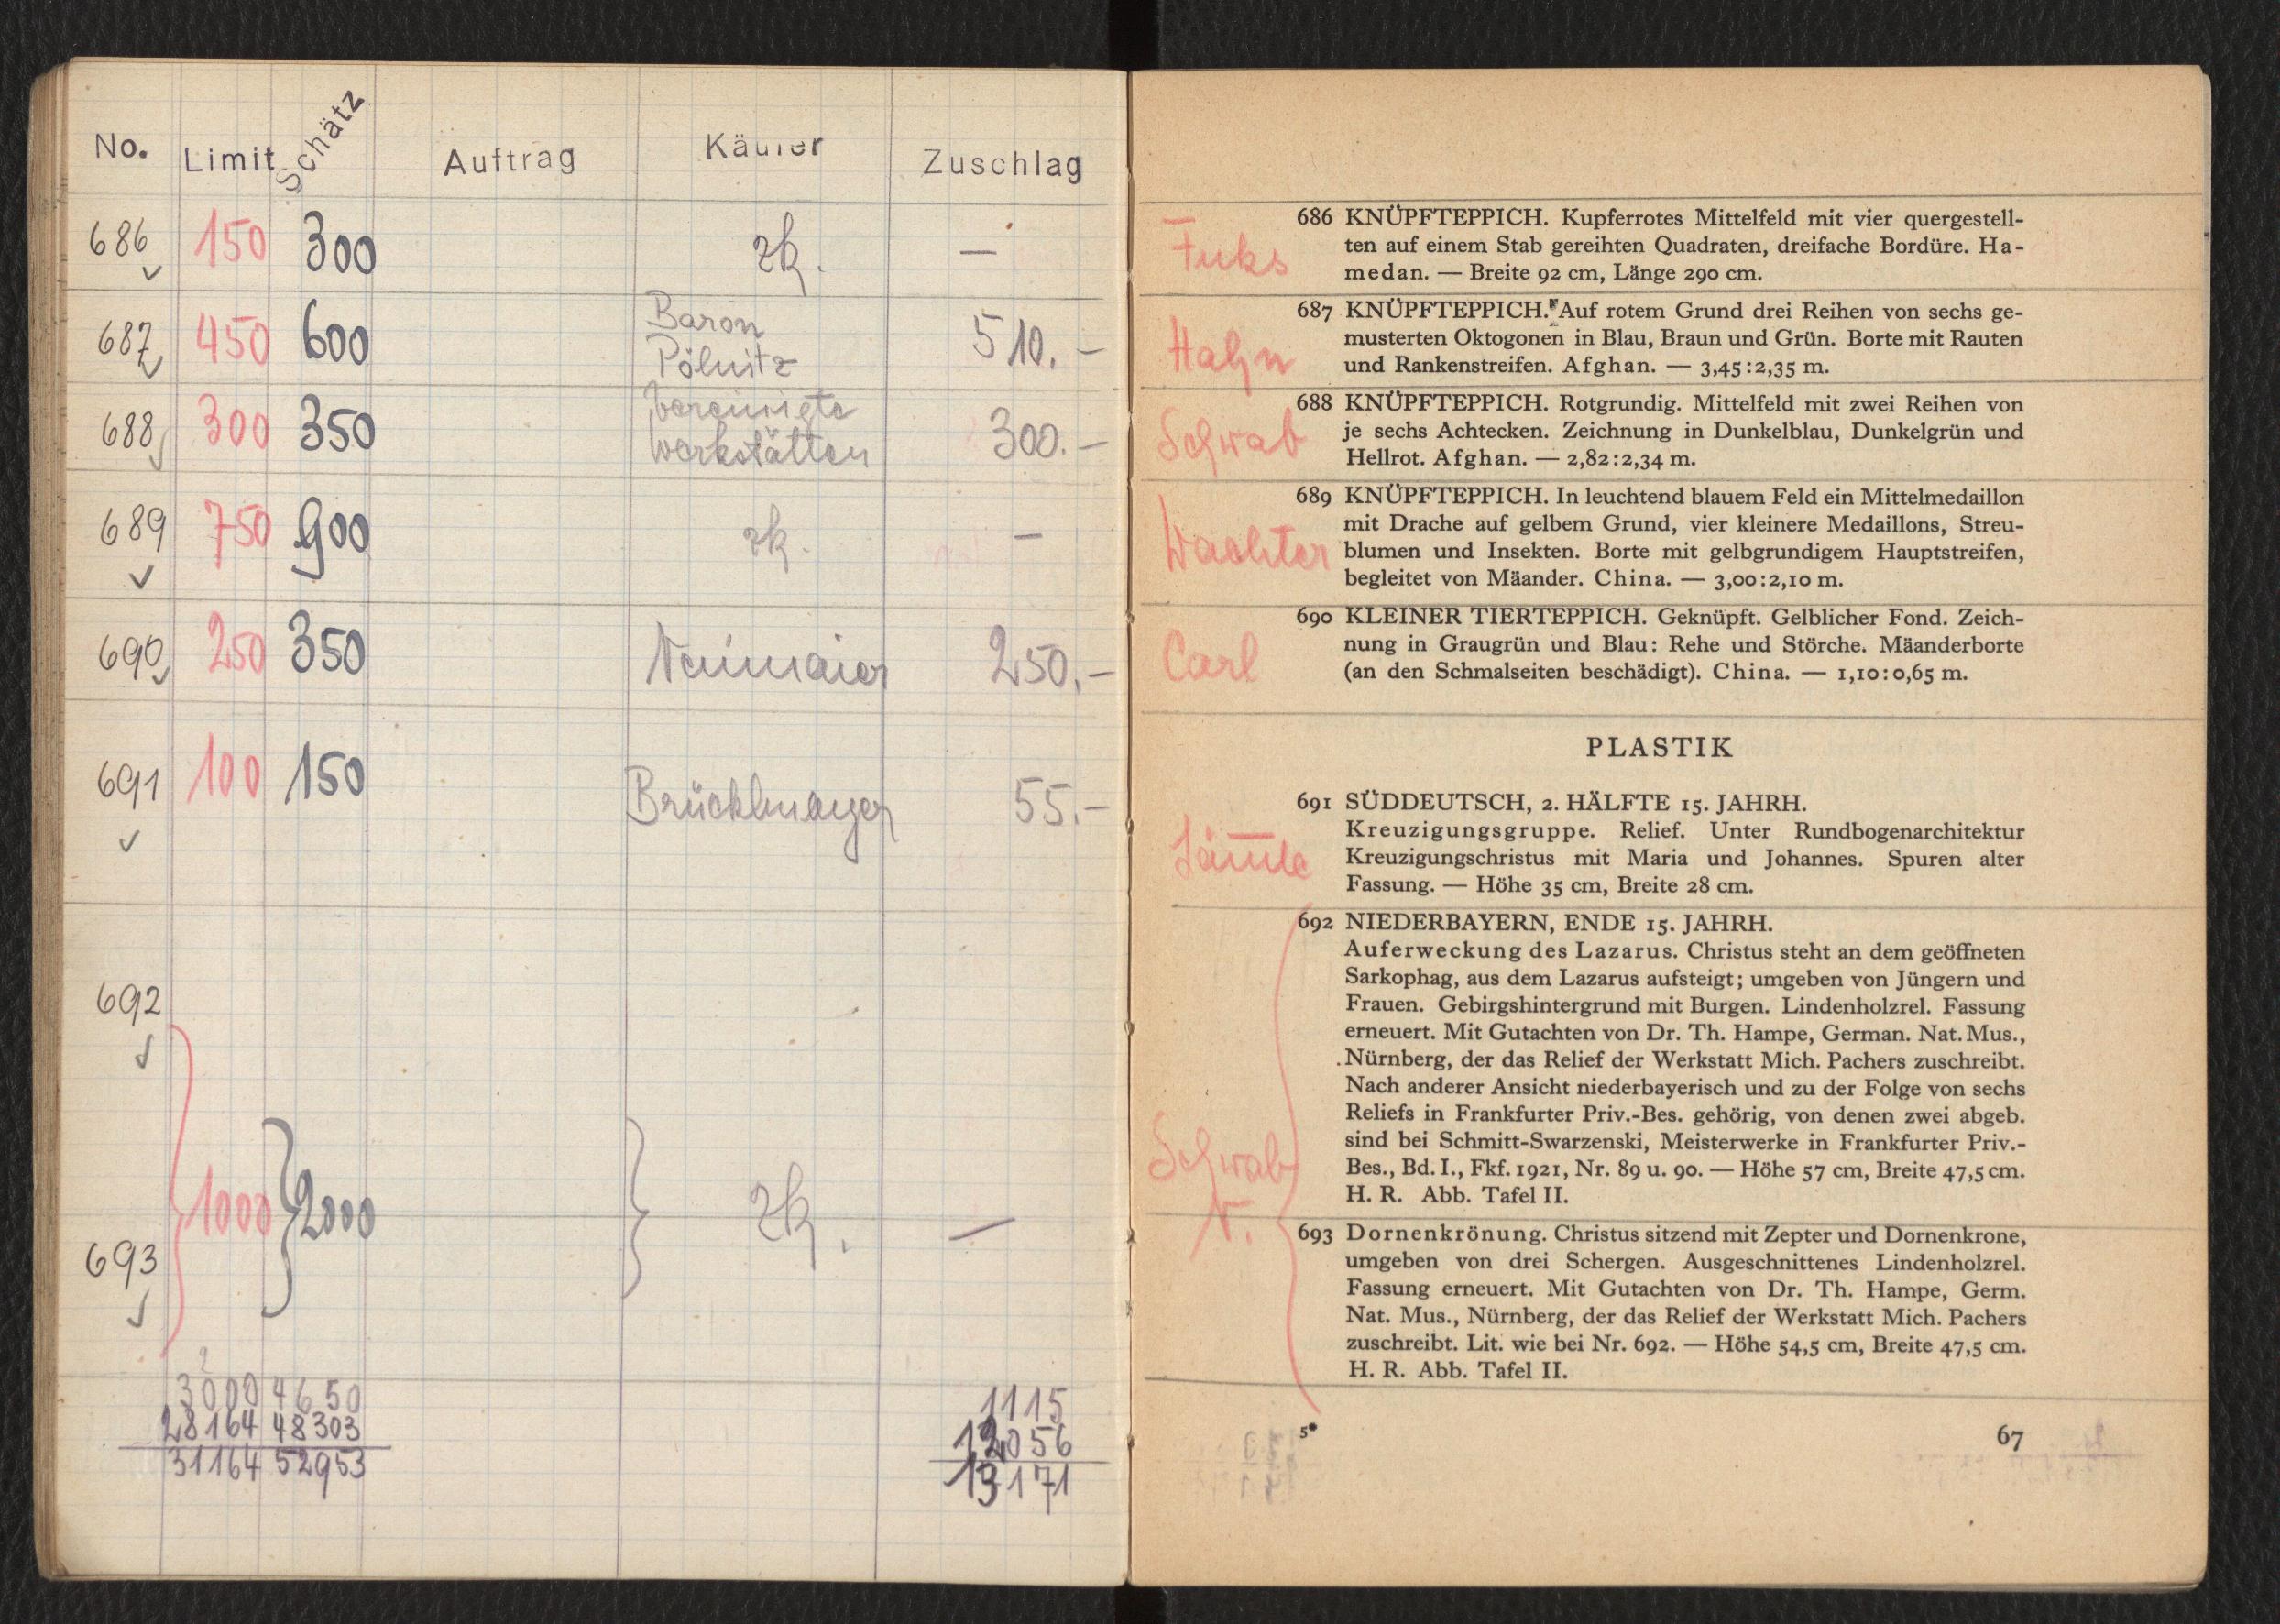 No. Limit Schätz Auftrag Käufer Zuschlag
686 150 300 zk. —
687 450 600 Baron Pölnitz 510.—
688 300 350 Vereinigte Werkstätten 300.—
689 750 900 zk. —
690 250 350 Neumaier 250.—
691 100 150 Brücklmayer 55.—
692
1000 2000 zk. —
693
3000 4650 1115
28164 48303 12056
31164 52953 13171
Fuks
686 KNÜPFTEPPICH. Kupferrotes Mittelfeld mit vier quergestell-
ten auf einem Stab gereihten Quadraten, dreifache Bordüre. Ha-
medan. — Breite 92 cm, Länge 290 cm.
Hahn
687 KNÜPFTEPPICH. Auf rotem Grund drei Reihen von sechs ge-
musterten Oktogonen in Blau, Braun und Grün. Borte mit Rauten
und Rankenstreifen. Afghan. — 3,45:2,35 m.
Schwab
688 KNÜPFTEPPICH. Rotgrundig. Mittelfeld mit zwei Reihen von
je sechs Achtecken. Zeichnung in Dunkelblau, Dunkelgrün und
Hellrot. Afghan. — 2,82:2,34 m.
Wachter
689 KNÜPFTEPPICH. In leuchtend blauem Feld ein Mittelmedaillon
mit Drache auf gelbem Grund, vier kleinere Medaillons, Streu-
blumen und Insekten. Borte mit gelbgrundigem Hauptstreifen,
begleitet von Mäander. China. — 3,00:2,10 m.
Carl
690 KLEINER TIERTEPPICH. Geknüpft. Gelblicher Fond. Zeich-
nung in Graugrün und Blau: Rehe und Störche. Mäanderborte
(an den Schmalseiten beschädigt). China. — 1,10:0,65 m.
PLASTIK
691 SÜDDEUTSCH, 2. HÄLFTE 15. JAHRH.
Kreuzigungsgruppe. Relief. Unter Rundbogenarchitektur
Kreuzigungschristus mit Maria und Johannes. Spuren alter
Fassung. — Höhe 35 cm, Breite 28 cm.
692 NIEDERBAYERN, ENDE 15. JAHRH.
Auferweckung des Lazarus. Christus steht an dem geöffneten
Sarkophag, aus dem Lazarus aufsteigt; umgeben von Jüngern und
Frauen. Gebirgshintergrund mit Burgen. Lindenholzrel. Fassung
erneuert. Mit Gutachten von Dr. Th. Hampe, German. Nat. Mus.,
Nürnberg, der das Relief der Werkstatt Mich. Pachers zuschreibt.
Nach anderer Ansicht niederbayerisch und zu der Folge von sechs
Reliefs in Frankfurter Priv.-Bes. gehörig, von denen zwei abgeb.
sind bei Schmitt-Swarzenski, Meisterwerke in Frankfurter Priv.-
Bes., Bd. I., Fkf. 1921, Nr. 89 u. 90. — Höhe 57 cm, Breite 47,5 cm.
H. R. Abb. Tafel II.
Schwab
N.
693 Dornenkrönung. Christus sitzend mit Zepter und Dornenkrone,
umgeben von drei Schergen. Ausgeschnittenes Lindenholzrel.
Fassung erneuert. Mit Gutachten von Dr. Th. Hampe, Germ.
Nat. Mus., Nürnberg, der das Relief der Werkstatt Mich. Pachers
zuschreibt. Lit. wie bei Nr. 692. — Höhe 54,5 cm, Breite 47,5 cm.
H. R. Abb. Tafel II.
5*
67